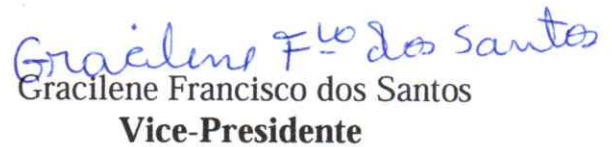 Gracilene Fco dos Santos
Gracilene Francisco dos Santos
Vice-Presidente